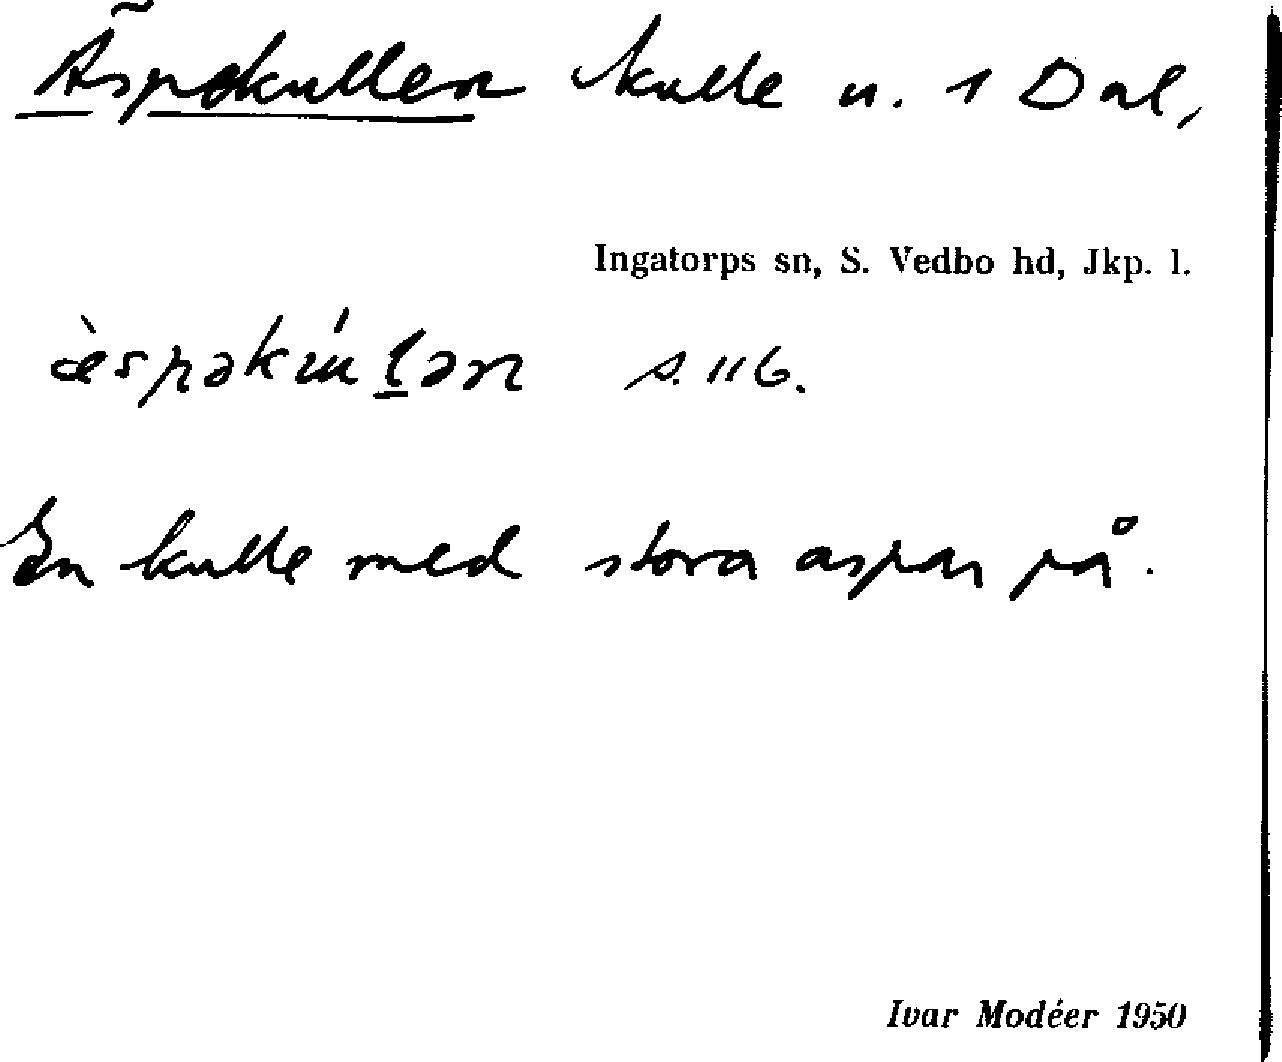 Äspekullen kulle u. 1 Dal,
Ingatorps sn, S. Vedbo hd, Jkp. l.
æ̀spəkúl̲ən s. 116.
En kulle med stora aspar på.
Ivar Modéer 1950